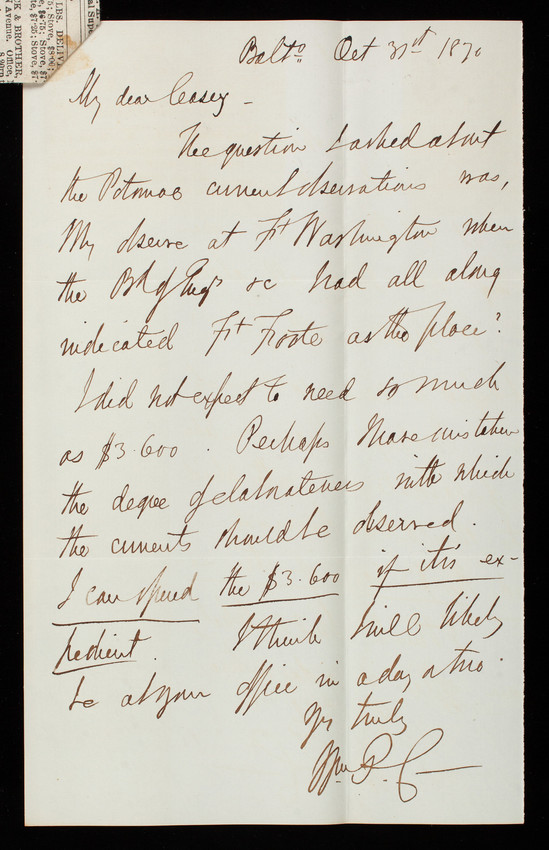 LBS. DELIV
5; Stove, $8.00;
$6.75; Stove, $7.
$7.25; Stove, $7.
CK & BROTHER,
Avenue. Office,
Balto. Oct 31st 1870
My dear Casey -
The question I asked about
the Potomac current observations was,
Why observe at Ft Washington when
the Bd of Engrs &c had all along
indicated Ft Foote as the place?
I did not expect to need so much
as $3.600. Perhaps I have mistaken
the degree of elaborateness with which
the currents should be observed.
I can spend the $3.600 if it is ex-
pedient. I think I will likely
be at your office in a day or two.
Yrs truly
Wm P. C